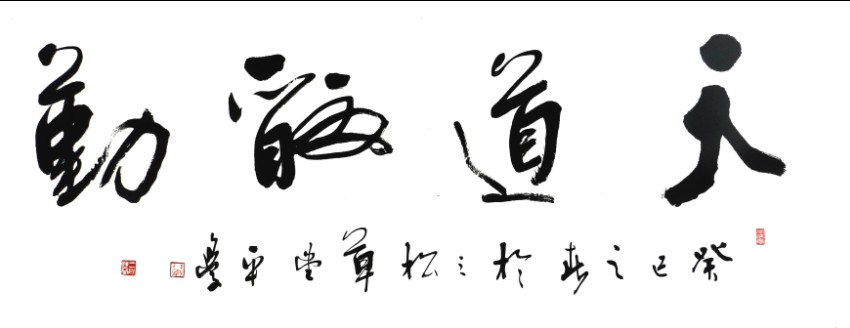 天道酬勤
癸巳之春於三松草堂平學